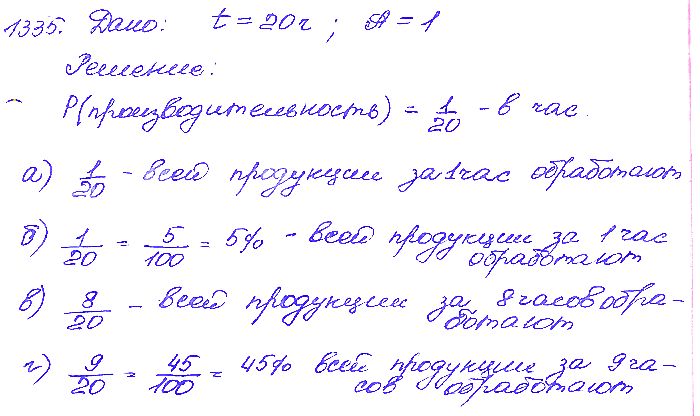 1335. Дано: t = 20ч ; A = 1
Решение:
P(производительность) = 1/20 - в час.
а) 1/20 - всей продукции за 1 час обработают
б) 1/20 = 5/100 = 5% - всей продукции за 1 час
обработают
в) 8/20 - всей продукции за 8 часов обра-
ботают
г) 9/20 = 45/100 = 45% всей продукции за 9 ча-
сов обработают